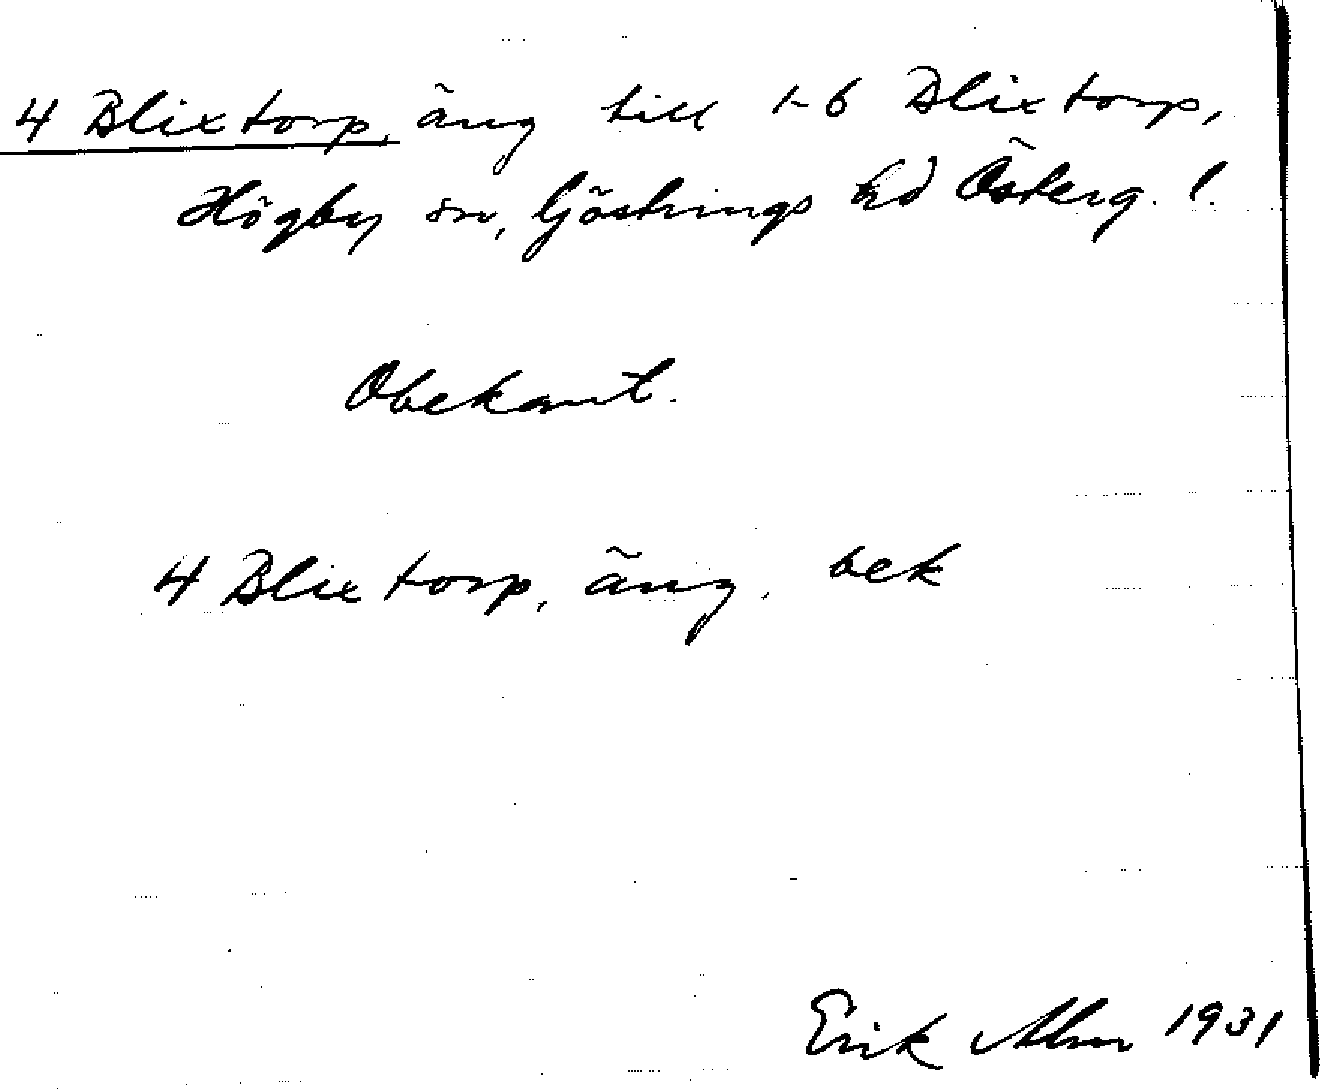 4 Blixtorp, äng till 1-6 Blixtorp,
Högby sn, Göstrings hd Österg. l.
Obekant.
4 Blixtorp, äng, bek
Erik Alm 1931